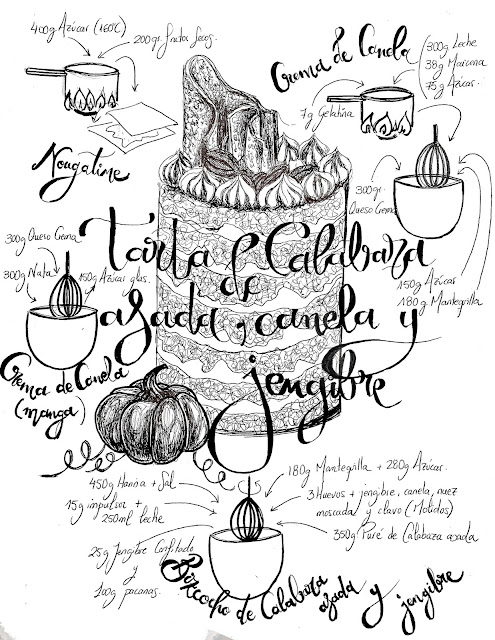 400g Azúcar (160ºC)
200gr. frutos secos.
Nougatine
Crema de Canela
300g Leche
38g Maicena
75g Azúcar.
7g Gelatina
300gr.
Queso Crema
150g Azúcar
180g Mantequilla
300g Queso Crema
300g Nata
150g Azúcar glas.
Crema de Canela
(manga)
Tarta de Calabaza
asada, canela y
jengibre
450g Harina + Sal
15g impulsor +
250ml leche
25g Jengibre Confitado
y
100g pacanas.
180g Mantequilla + 280g Azúcar.
3 Huevos + jengibre, canela, nuez
moscada y clavo (Molidos)
350g Puré de Calabaza asada
Bizcocho de Calabaza
asada y jengibre